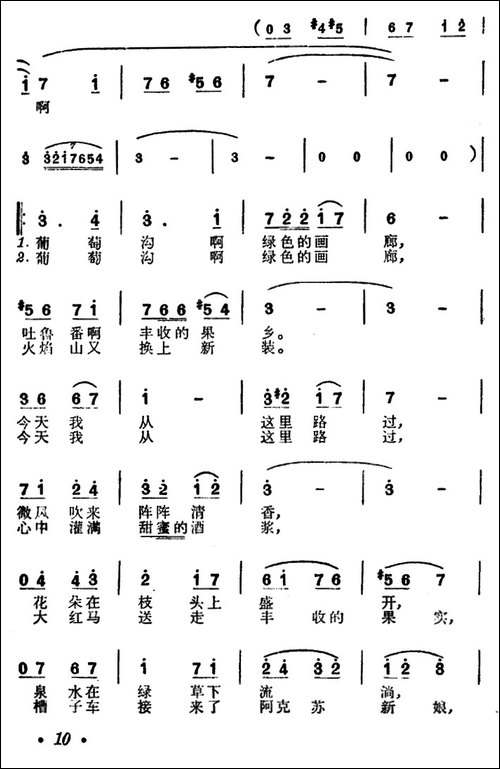 (0 3 #4 #5 | 6 7 1 2
1 7 1 | 7 6 #5 6 | 7 - | 7 - |
啊
3 3217654 | 3 - | 3 - | 0 0 | 0 0 )
3 . 4 | 3 . 1 | 7 2 2 1 7 | 6 - |
1. 葡 萄 沟 啊 绿色的画 廊,
2. 葡 萄 沟 啊 绿色的画 廊,
#5 6 7 1 | 7 6 6 #5 4 | 3 - | 3 - |
吐鲁 番啊 丰收的果 乡。
火焰 山又 换上 新 装。
3 6 6 7 | 1 - | 3 #2 1 7 | 7 - |
今天我 从 这里路 过,
今天我 从 这里路 过,
7 1 2 4 | 3 2 1 2 | 3 - | 3 - |
微风 吹来 阵阵 清 香,
心中 灌满 甜蜜的酒 浆,
0 4 4 3 | 2 1 7 | 6 1 7 6 | #5 6 7 |
花 朵在 枝 头上 盛 开,
大 红马 送 走 丰 收的 果 实,
0 7 6 7 | 1 7 1 | 2 4 3 2 | 1 2 3 |
泉 水在 绿 草下 流 淌,
槽 子车 接 来了 阿克 苏 新 娘,
• 10 •